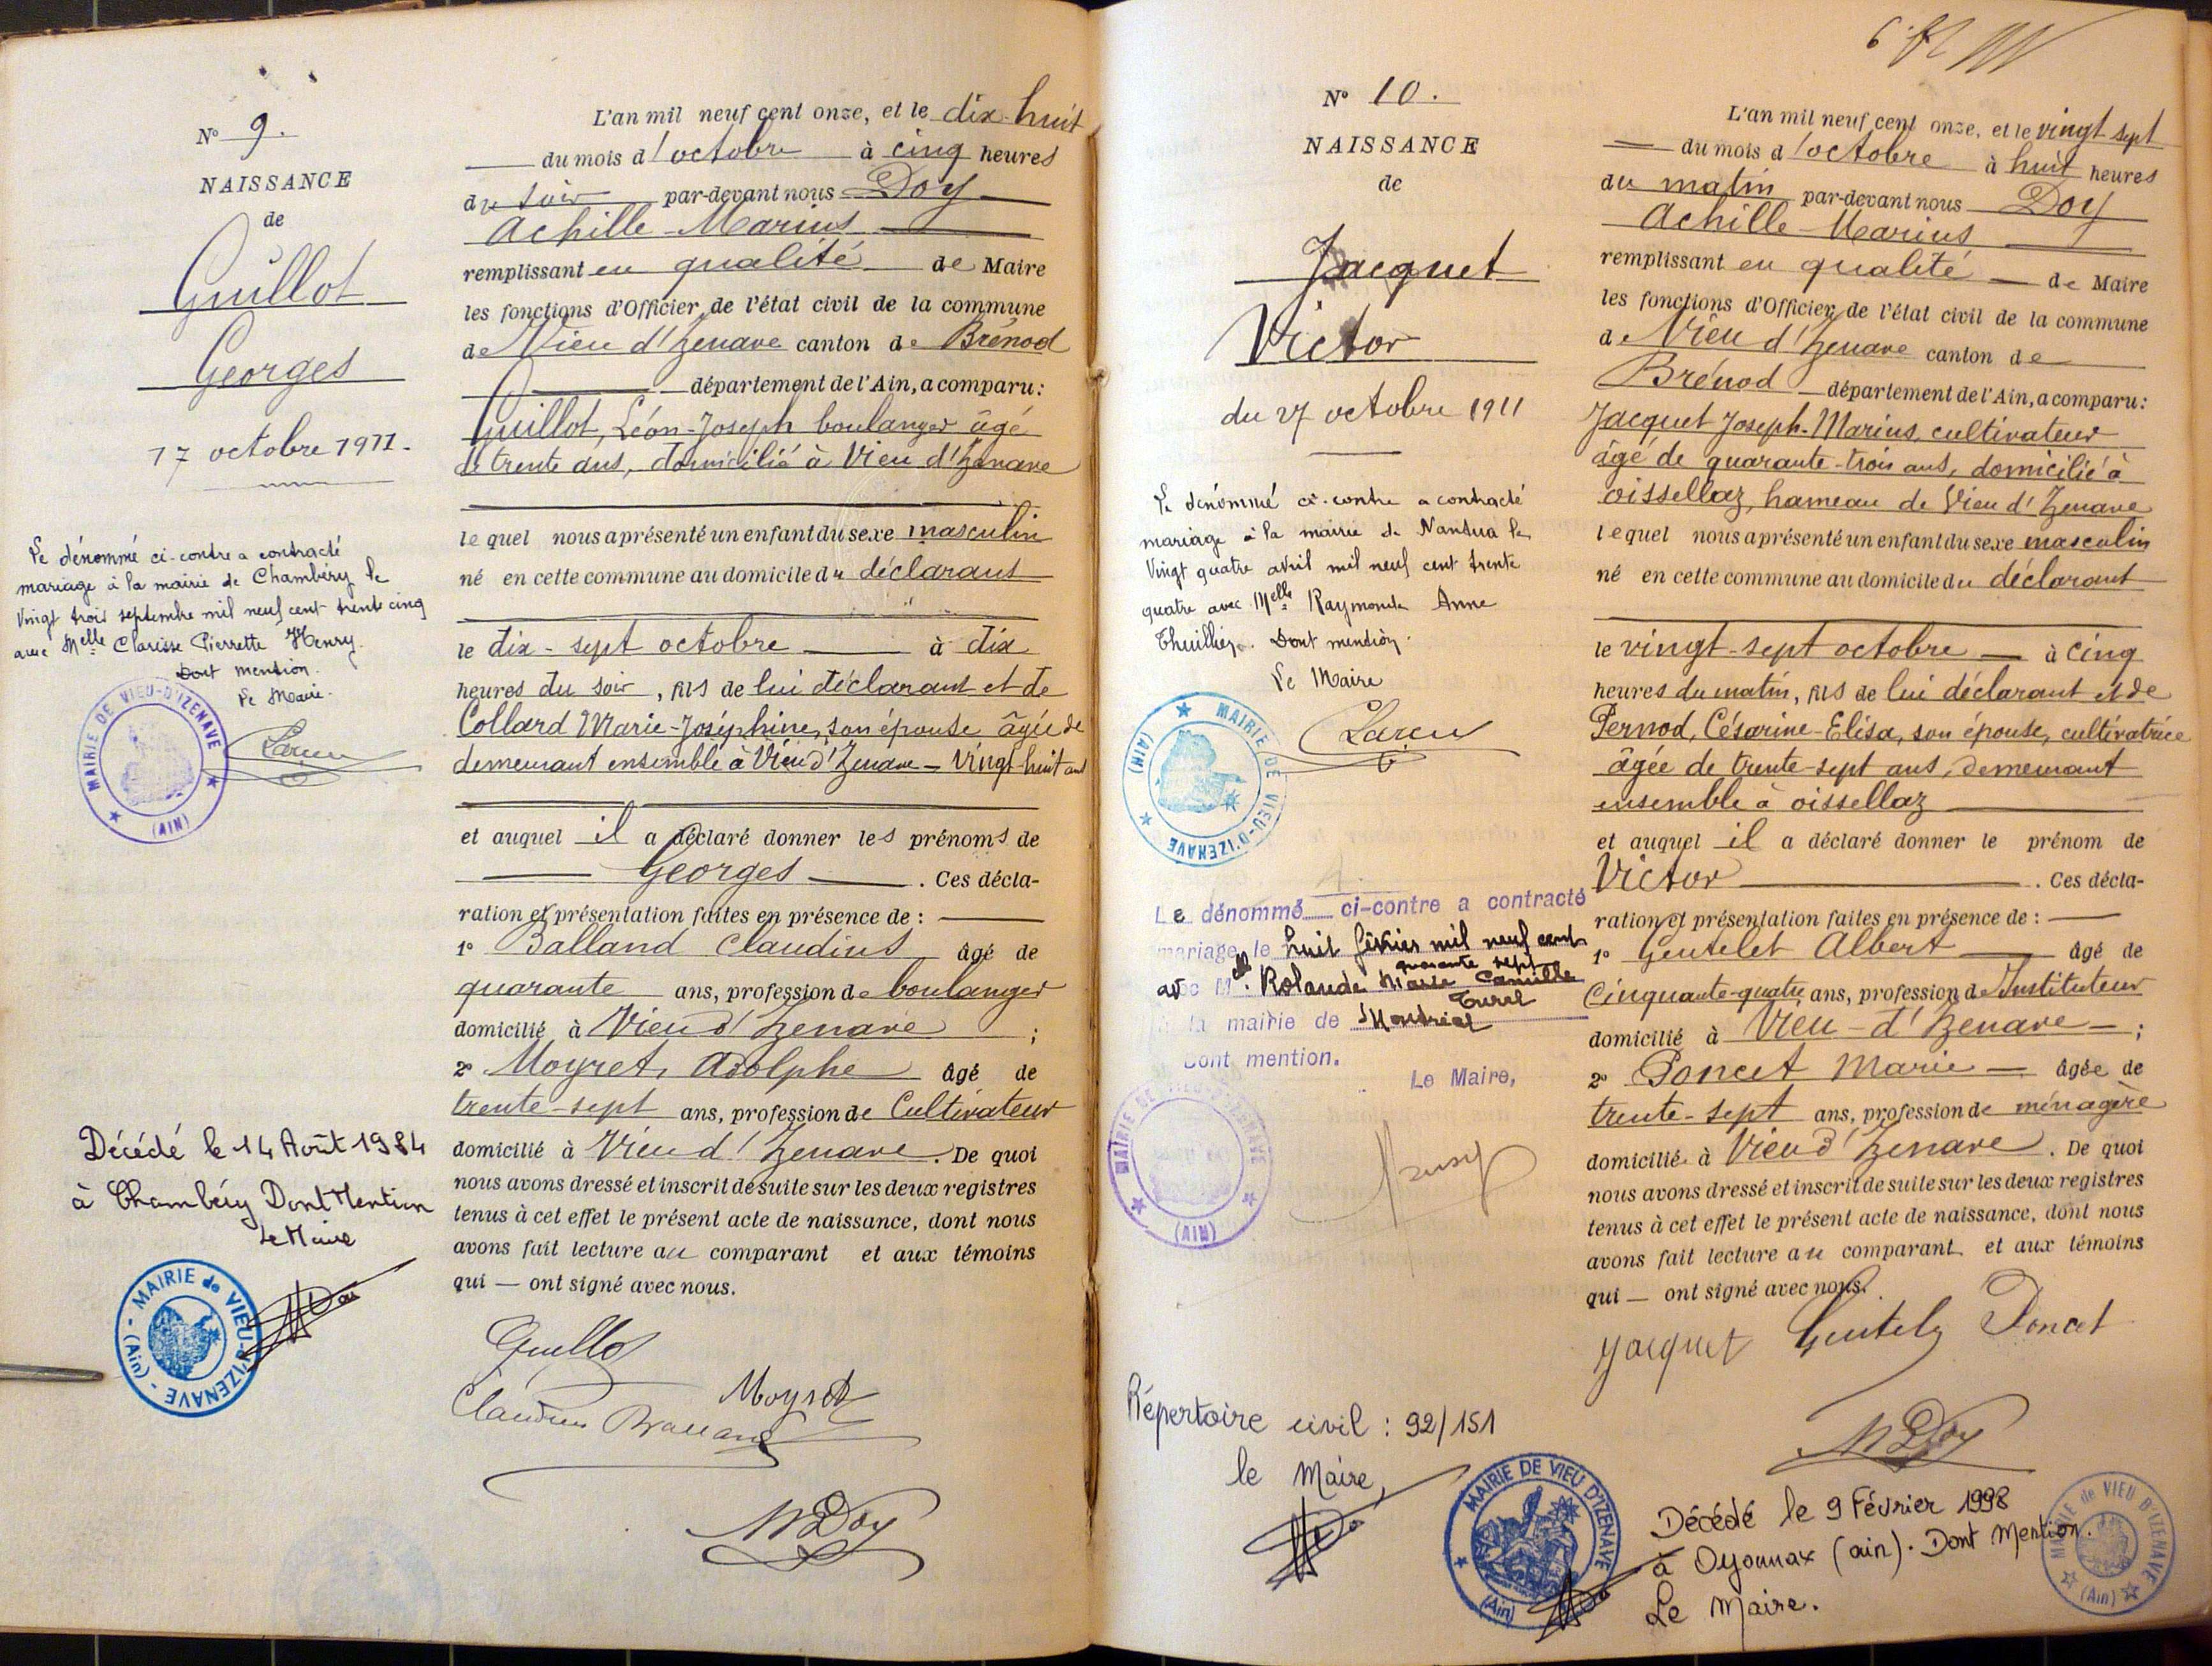 N° 9.
NAISSANCE
de
Guillot
Georges
17 octobre 1911.
Le dénommé ci-contre a contracté
mariage à la mairie de Chambéry le
Vingt trois septembre mil neuf cent trente cinq
avec Melle Clarisse Pierrette Henry.
Dont mention.
Le Maire.
MAIRIE DE VIEU-D'IZENAVE
(AIN)
Décédé le 14 Août 1984
à Chambéry Dont Mention
Le Maire
MAIRIE de VIEU-D'IZENAVE
(Ain)
L'an mil neuf cent onze, et le dix-huit
du mois d'octobre à cinq heures
du soir par-devant nous Doy
Achille-Marius
remplissant en qualité de Maire
les fonctions d'Officier de l'état civil de la commune
de Vieu d'Izenave canton de Brénod
département de l'Ain, a comparu:
Guillot, Léon-Joseph boulanger âgé
de trente ans, domicilié à Vieu d'Izenave
lequel nous a présenté un enfant du sexe masculin
né en cette commune au domicile du déclarant
le dix-sept octobre à dix
heures du soir, fils de lui déclarant et de
Collard Marie-Joséphine, son épouse âgée de
demeurant ensemble à Vieu d'Izenave - Vingt-huit ans
et auquel il a déclaré donner les prénoms de
Georges. Ces décla-
ration et présentation faites en présence de :
1° Balland Claudius âgé de
quarante ans, profession de boulanger
domicilié à Vieu d'Izenave ;
2° Moyret, Adolphe âgé de
trente-sept ans, profession de Cultivateur
domicilié à Vieu d'Izenave. De quoi
nous avons dressé et inscrit de suite sur les deux registres
tenus à cet effet le présent acte de naissance, dont nous
avons fait lecture au comparant et aux témoins
qui — ont signé avec nous.
Guillot
Moyret
Claudius Balland
Doy
N° 10.
NAISSANCE
de
Jacquet
Victor
du 27 octobre 1911
Le dénommé ci-contre a contracté
mariage à la mairie de Nantua le
Vingt quatre avril mil neuf cent trente
quatre avec Melle Raymonde Anne
Thuillier. Dont mention.
Le Maire
MAIRIE DE VIEU-D'IZENAVE
(AIN)
Le dénommé ci-contre a contracté
mariage le huit février mil neuf cent
quarante sept
avec Melle Rolande Marie Camille
Turel
à la mairie de Montréal
Dont mention.
Le Maire,
MAIRIE DE VIEU-D'IZENAVE
(AIN)
Répertoire civil : 92/151
le Maire,
MAIRIE DE VIEU D'IZENAVE
(Ain)
L'an mil neuf cent onze, et le vingt sept
du mois d'octobre à huit heures
du matin par-devant nous Doy
Achille-Marius
remplissant en qualité de Maire
les fonctions d'Officier de l'état civil de la commune
de Vieu d'Izenave canton de
Brénod département de l'Ain, a comparu:
Jacquet Joseph-Marius, cultivateur
âgé de quarante-trois ans, domicilié à
oissellaz, hameau de Vieu d'Izenave
lequel nous a présenté un enfant du sexe masculin
né en cette commune au domicile du déclarant
le vingt-sept octobre à cinq
heures du matin, fils de lui déclarant et de
Pernod, Césarine-Elisa, son épouse, cultivatrice
âgée de trente-sept ans, demeurant
ensemble à oissellaz
et auquel il a déclaré donner le prénom de
Victor. Ces décla-
ration et présentation faites en présence de :
1° Gentelet Albert âgé de
Cinquante-quatre ans, profession d'Instituteur
domicilié à Vieu-d'Izenave ;
2° Poncet Marie âgée de
trente-sept ans, profession de ménagère
domicilié à Vieu d'Izenave. De quoi
nous avons dressé et inscrit de suite sur les deux registres
tenus à cet effet le présent acte de naissance, dont nous
avons fait lecture au comparant et aux témoins
qui — ont signé avec nous.
Jacquet Gentelet Poncet
Doy
Décédé le 9 Février 1998
à Oyonnax (ain). Dont Mention.
Le Maire.
MAIRIE de VIEU D'IZENAVE
(Ain)